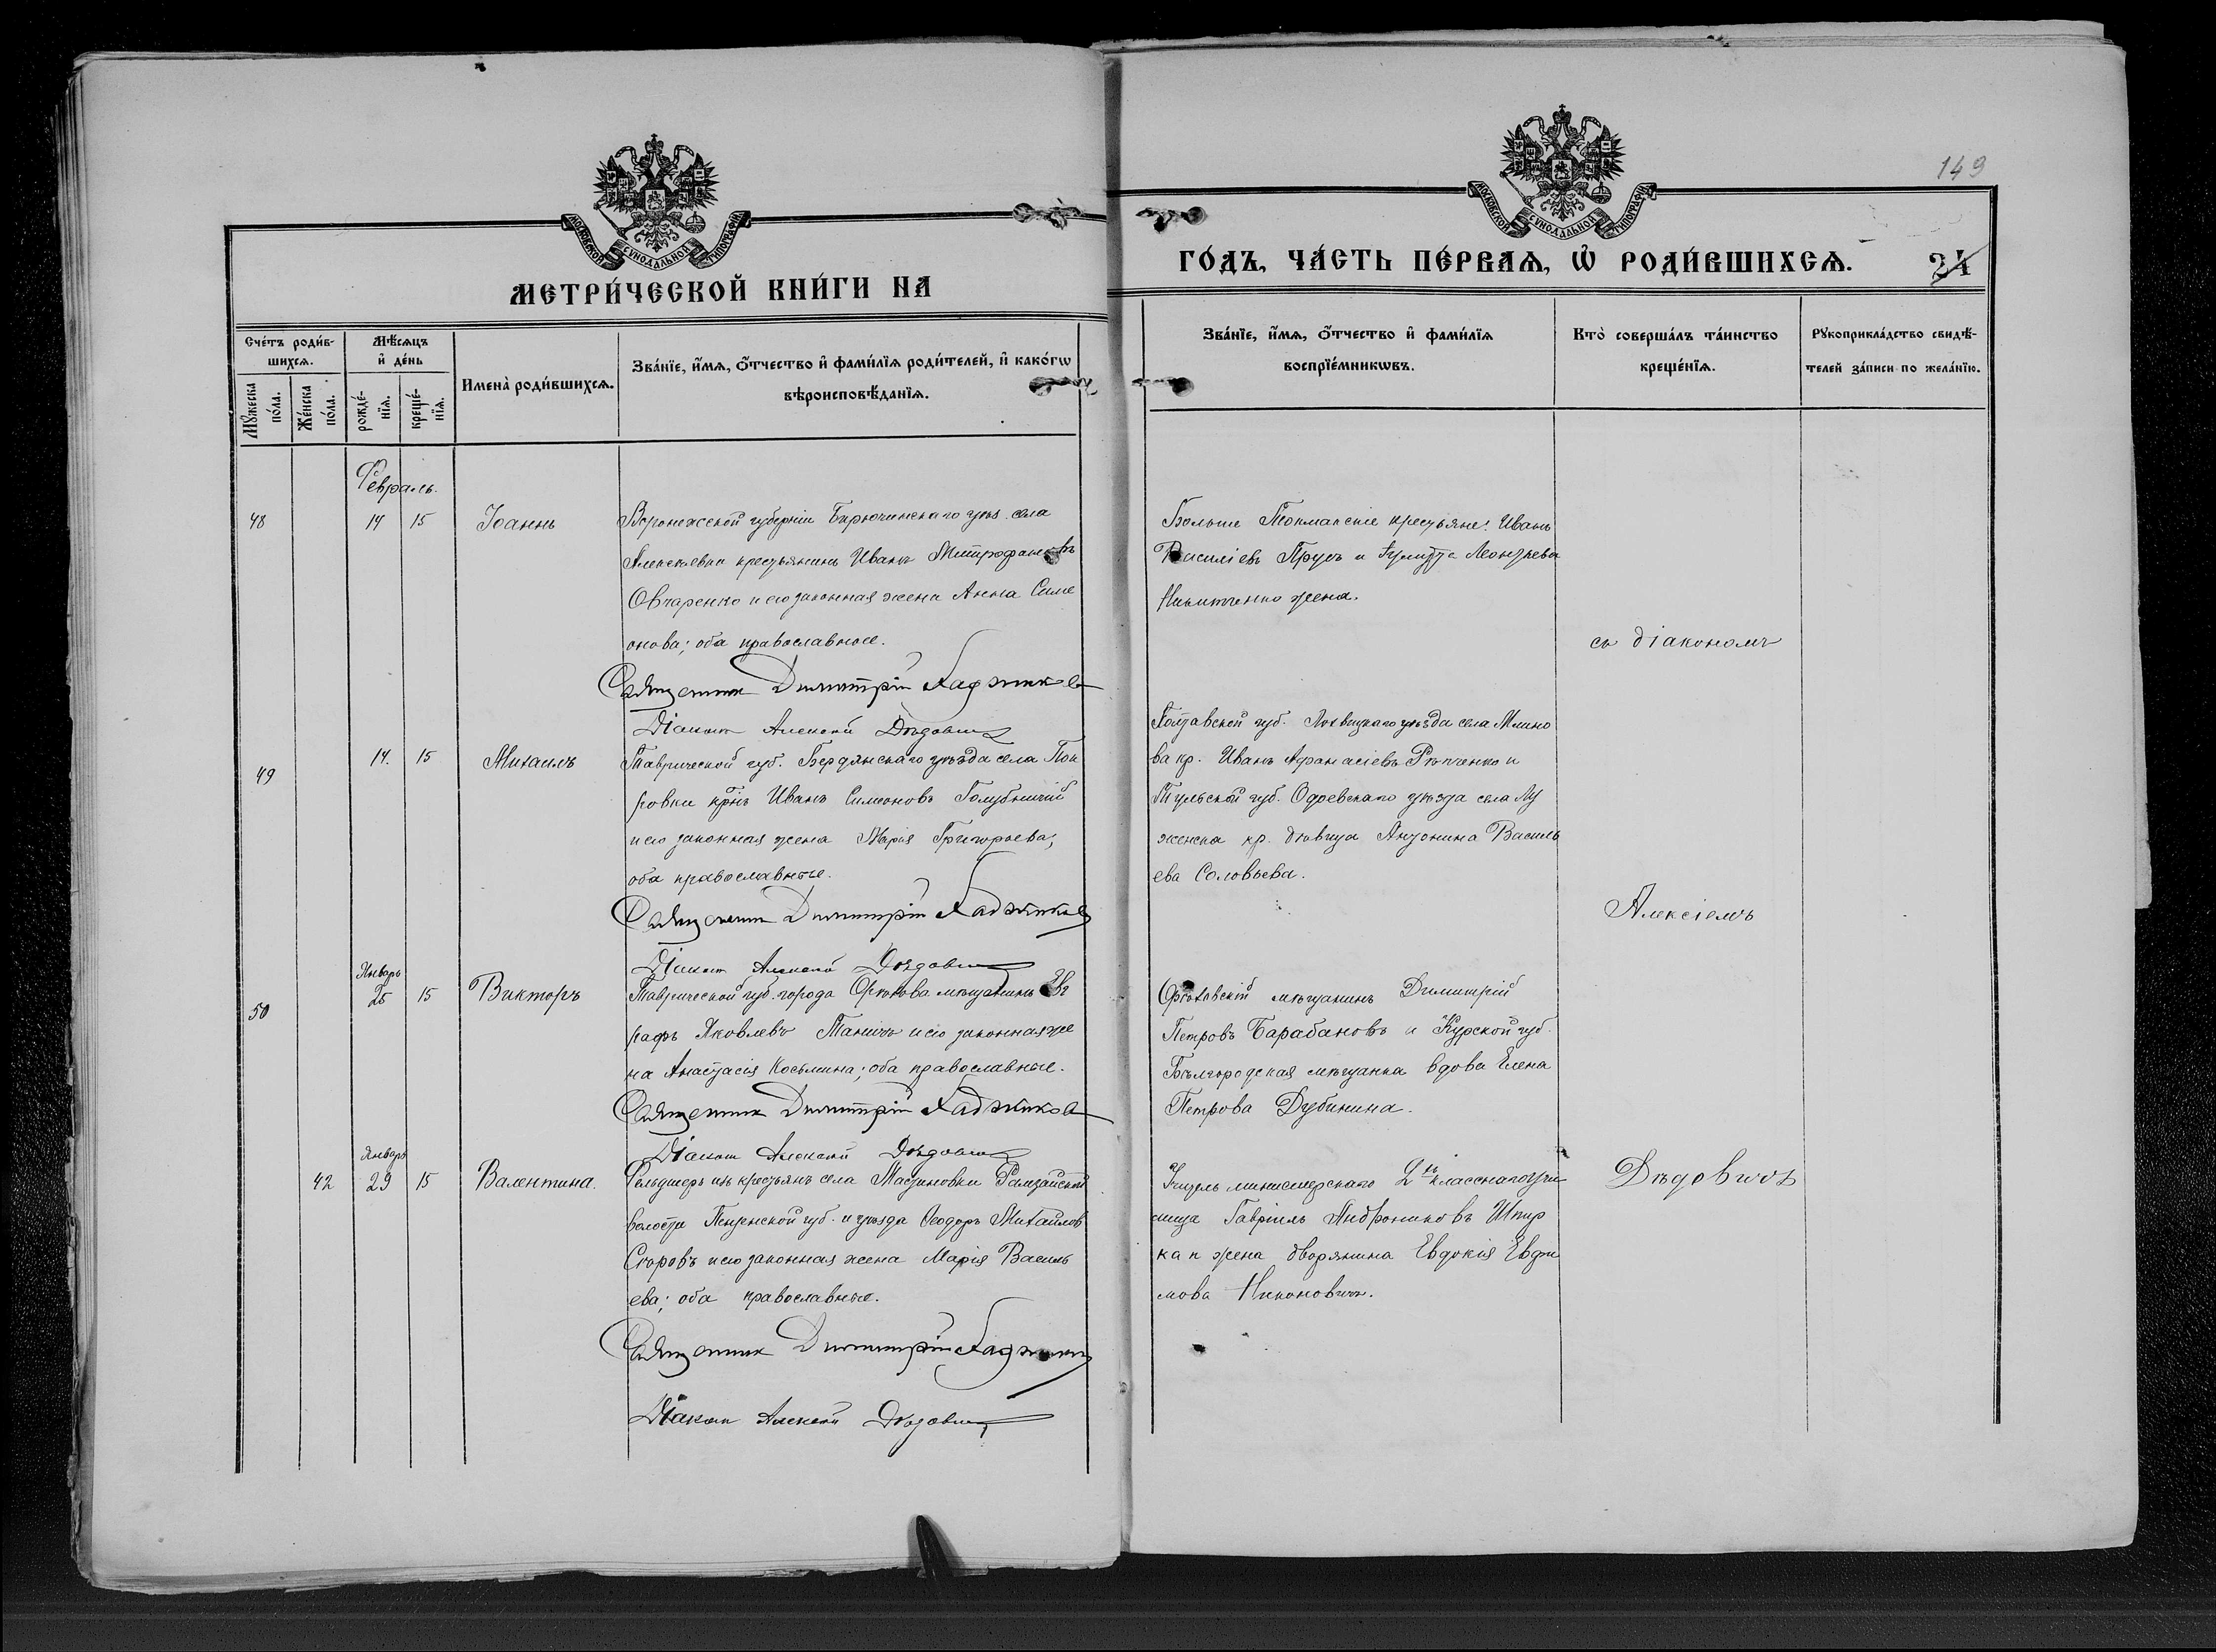 149
МОСКОВСКОЙ СѴНОДАЛЬНОЙ ТИПОГРАФІИ
МОСКОВСКОЙ СѴНОДАЛЬНОЙ ТИПОГРАФІИ
МЕТРИ́ЧЕСКОЙ КНИ́ГИ НА
ГО́ДЪ, ЧА́СТЬ ПЕ́РВАѦ, Ѡ҆ РОДИ́ВШИХСѦ.
24
Сче́тъ роди́в-
шихсѧ.
Мꙋжеска по́ла.
Же́нска по́ла.
Мѣ́сѧцъ
и҆ де́нь
рожде́-
нїѧ.
креще́-
нїѧ.
Имена̀ роди́вшихсѧ.
Зва́нїе, и҆́мѧ, ѻ҆́тчество и҆ фами́лїѧ роди́телей, и҆ како́гѡ
вѣроисповѣ́данїѧ.
Зва́нїе, и҆́мѧ, ѻ҆́тчество и҆ фами́лїѧ
воспрїе́мникѡвъ.
Кто̀ соверша́лъ та́инство
креще́нїѧ.
Рꙋкоприкла́дство свидѣ́-
телей за́писи по жела́нїю.
Февраль.
48 14 15 Іоаннъ
Воронежской губерніи Бирючинскаго уѣз. села
Алексѣевки крестьянинъ Иванъ Митрофановъ
Овчаренко и его законная жена Анна Симе
онова; оба православные.
Священник Димитрій Хаджинов
Діакон Алексѣй Дѣдович
Больше Токмакскіе крестьяне: Иванъ
Василіевъ Прусъ и Леонтьева
Никитченко жена.
съ діакономъ
49 14. 15 Михаилъ
Таврической губ. Бердянскаго уѣзда села Пок
ровки кр̃нъ Иванъ Симеоновъ Голубничій
и его законная жена Марія Григорьева;
оба православные.
Священник Димитрій Хаджинов
Діакон Алексѣй Дѣдович
Полтавской губ. Лохвицкаго уѣзда села Млино
ва кр. Иванъ Афанасіевъ Рѣпченко и
Тульской губ. Одоевскаго уѣзда села Лу
женска кр. дѣвица Антонина Василь
ева Соловьева.
Алексіемъ
Январь
50 25 15 Викторъ
Таврической губ. города Орѣхова мѣщанинъ Евг
рафъ Яковлевъ Таничъ и его законная же
на Анастасія Косьмина; оба православные.
Священник Димитрій Хаджинов
Діакон Алексѣй Дѣдович
Орѣховскій мѣщанинъ Димитрій
Петровъ Барабановъ и Курской губ.
Бѣлгородская мѣщанка вдова Елена
Петрова Дубинина.
Январь
42 29 15 Валентина.
Фельдшеръ изъ крестьянъ села Мастиновки Рамзайской
волости Пензенской губ. и уѣзда Ѳеодоръ Михайлов
и его законная жена Марія Василь
ева; оба православные.
Священник Димитрій Хаджинов
Діакон Алексѣй Дѣдович
Учитель министерскаго 2хъ класснаго учи
лища Гавріилъ Андрониковъ Шпир
ка и жена дворянина Евдокія Евфи
мова Никоновичъ.
Дѣдовичъ